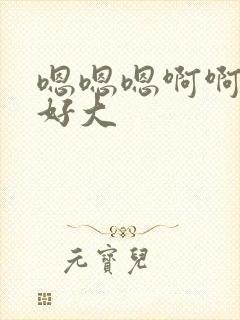 嗯嗯嗯啊啊
好大
元寶兒